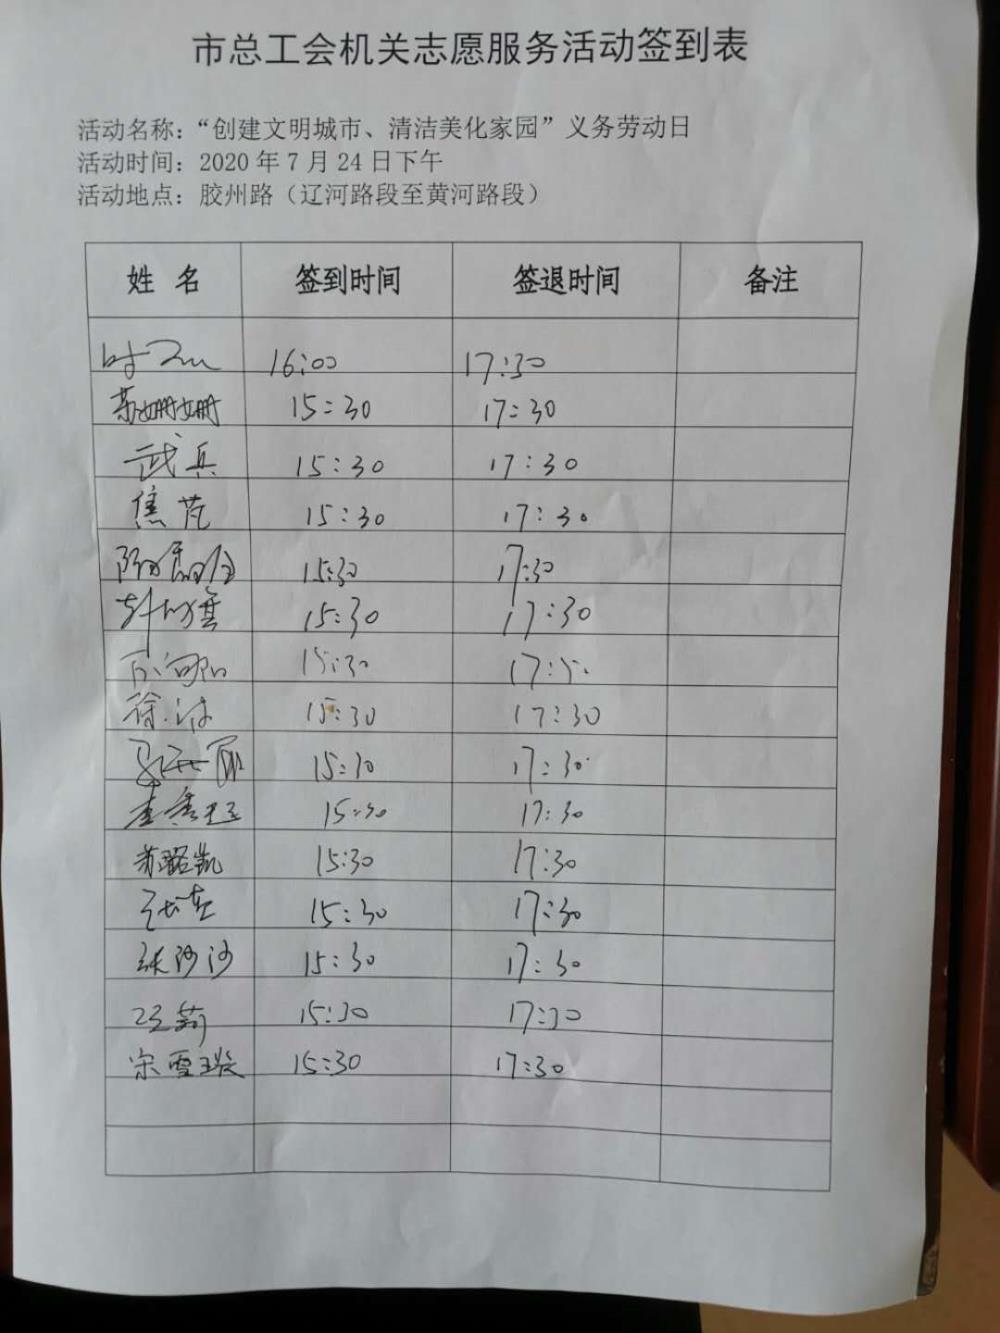 市总工会机关志愿服务活动签到表
活动名称：“创建文明城市、清洁美化家园”义务劳动日
活动时间：2020 年 7 月 24 日下午
活动地点：胶州路（辽河路段至黄河路段）
姓 名 签到时间 签退时间 备注
16:00 17:30
苏姗姗 15:30 17:30
武兵 15:30 17:30
焦范 15:30 17:30
15:30 17:30
15:30 17:30
15:30
徐 15:30 17:30
15:30 17:30
李 15:30 17:30
苏晓凯 15:30 17:30
15:30 17:30
张沙沙 15:30 17:30
15:30 17:30
宋雪 15:30 17:30